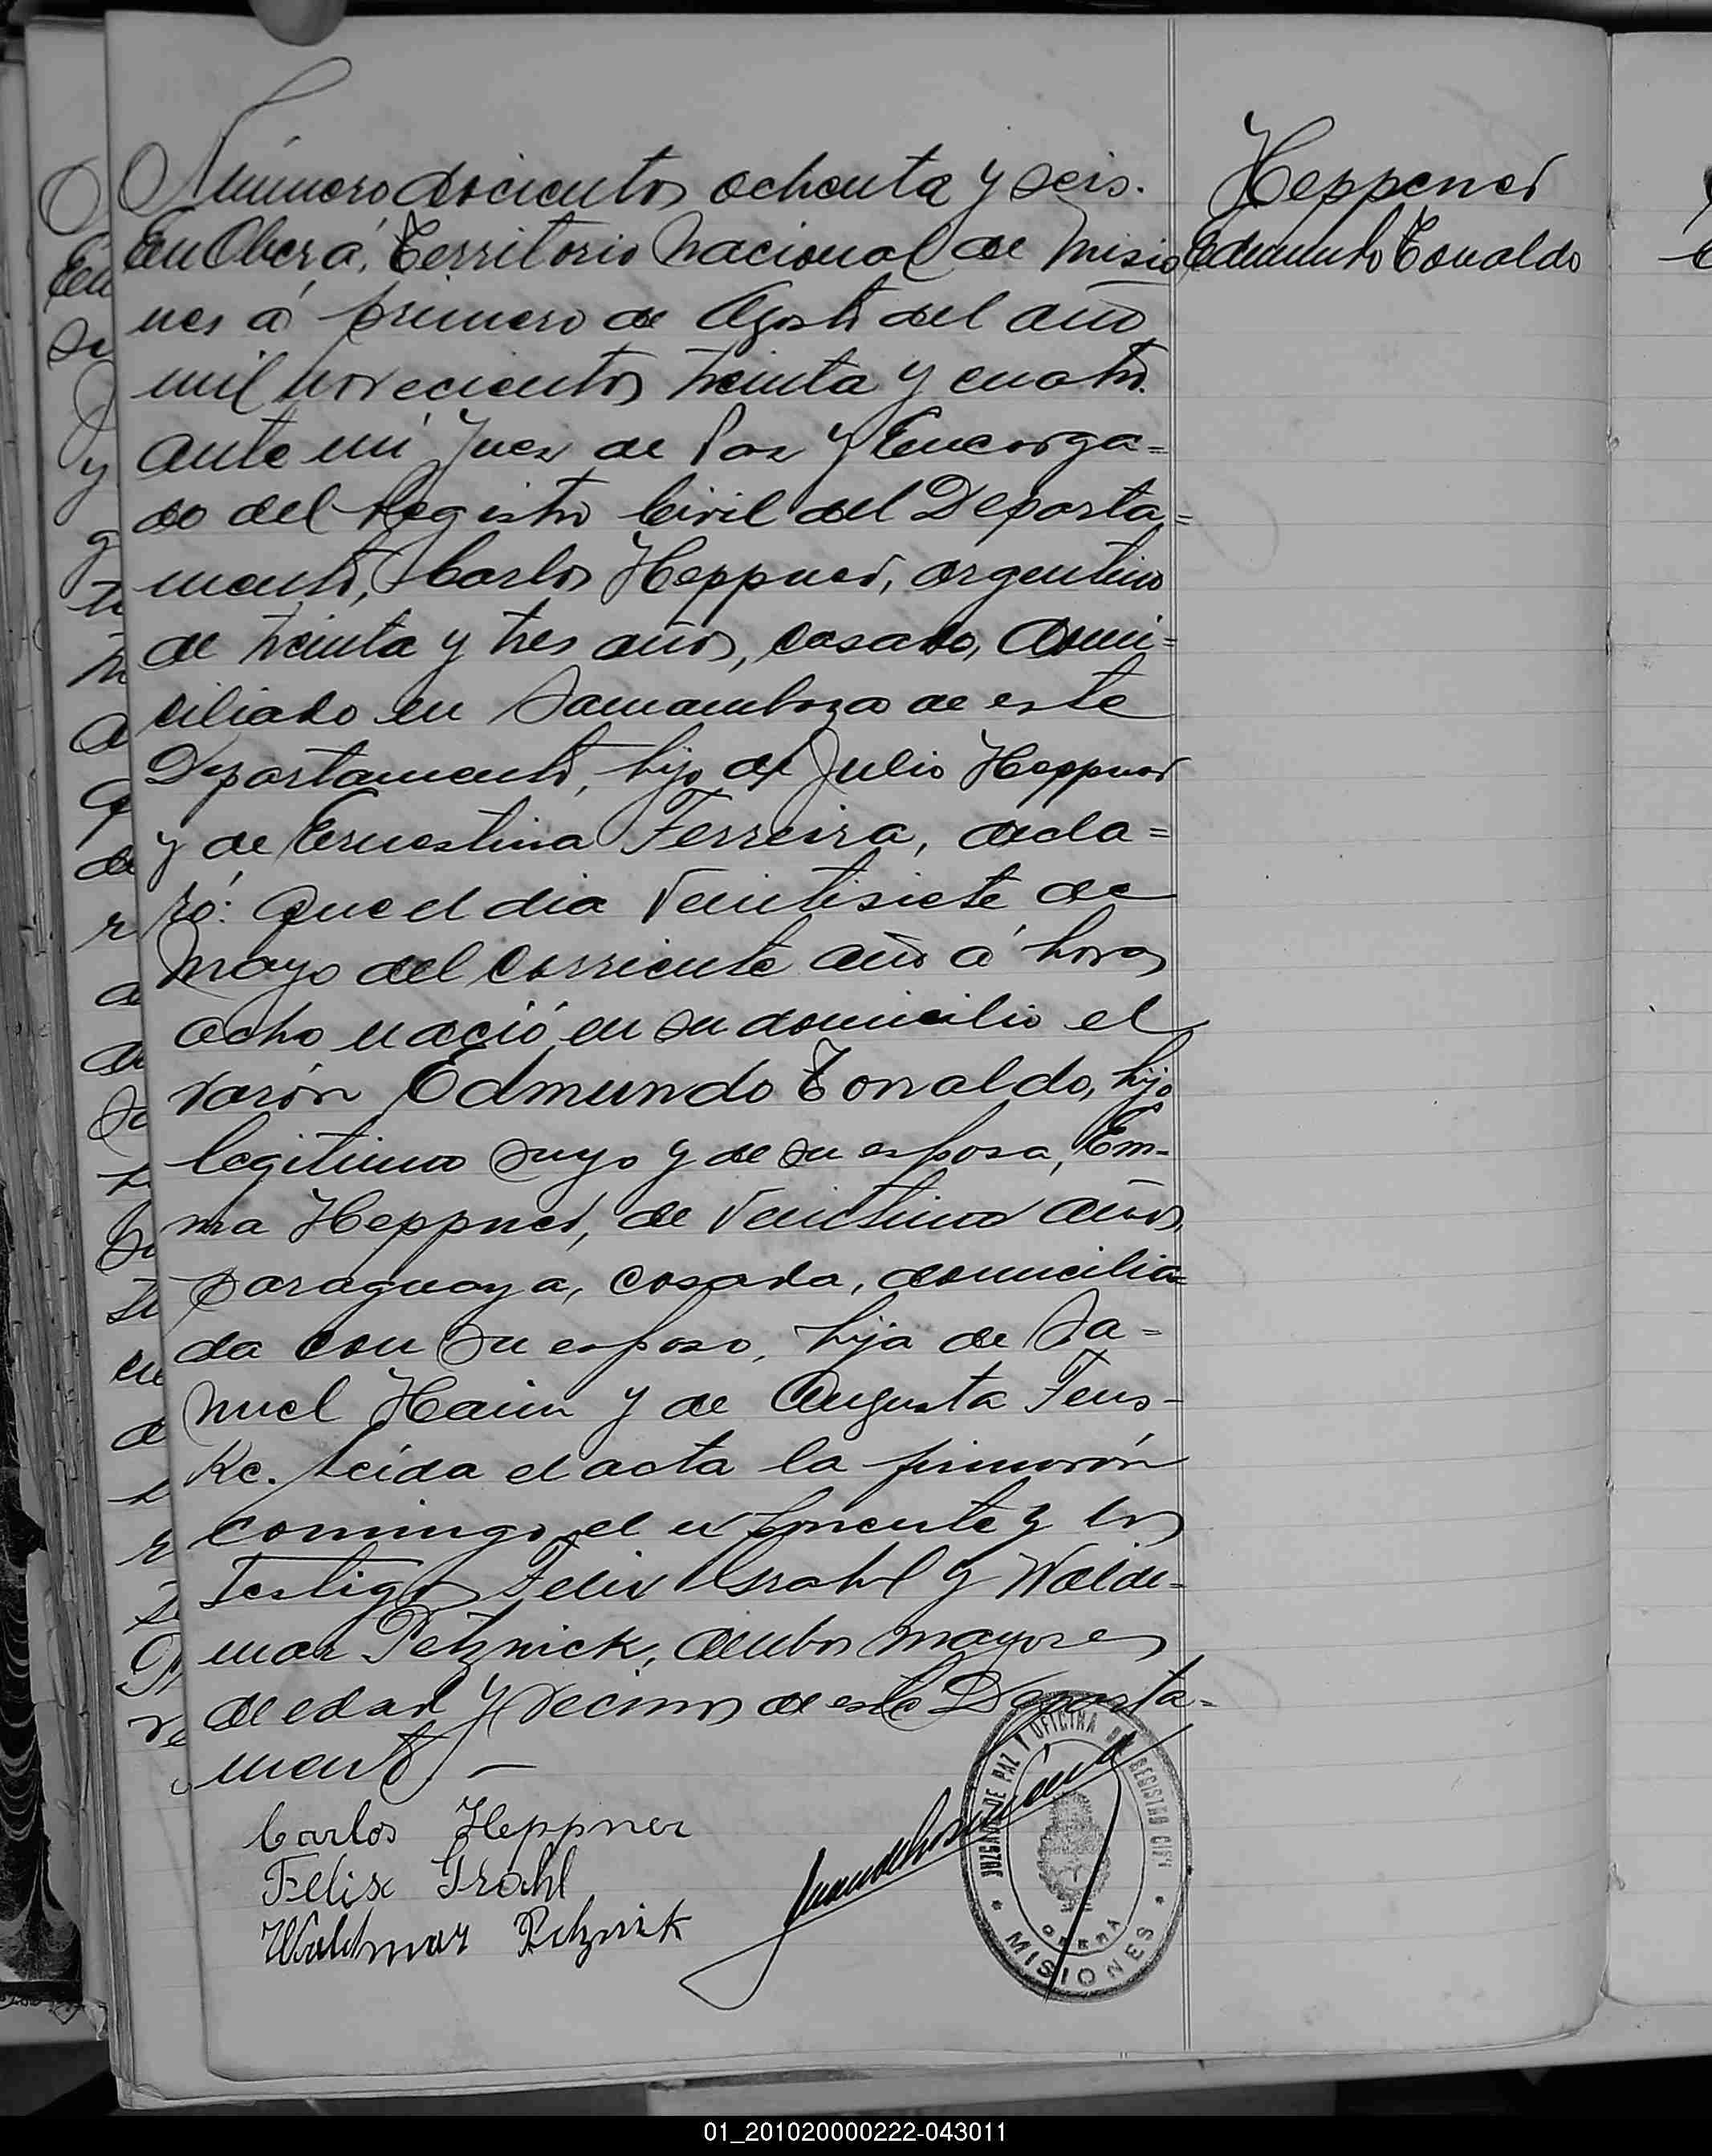 Número docientos ochenta y seis.
En Oberá, Territorio Nacional de Misio
nes á primero de Agosto del año
mil novecientos treinta y cuatro.
ante mi Juez de Paz y Encarga=
do del Registro Civil del Departa=
mento, Carlos Heppner, argentino
de treinta y tres años, casado, domi=
ciliado en Samambaya de este
Departamento, hijo de Julio Heppner
y de Ernestina Ferreira, decla=
ró: Que el dia Veintisiete de
Mayo del corriente año á horas
ocho nació en su domicilio el
varón Edmundo Tonaldo, hijo
legitimo suyo y de su esposa, Em-
ma Heppner, de Veintiuno años,
paraguaya, casada, domicilia=
da con su esposo, hija de Sa=
muel Haim y de Augusta Fens-
ke. Leída el acta la firmarón
conmigo, el exponente y los
Testigos Felix Grahl y Walde-
mar Petznick, ambos mayores
de edad y vecinos de este Departa-
mento. —
Carlos Heppner
Felix Grahl
Waldmar Petznick
Heppener
Edmundo Tonaldo
JUZGADO DE PAZ Y OFICINA DE REGISTRO CIVIL
OBERA
* MISIONES *
01_201020000222-043011